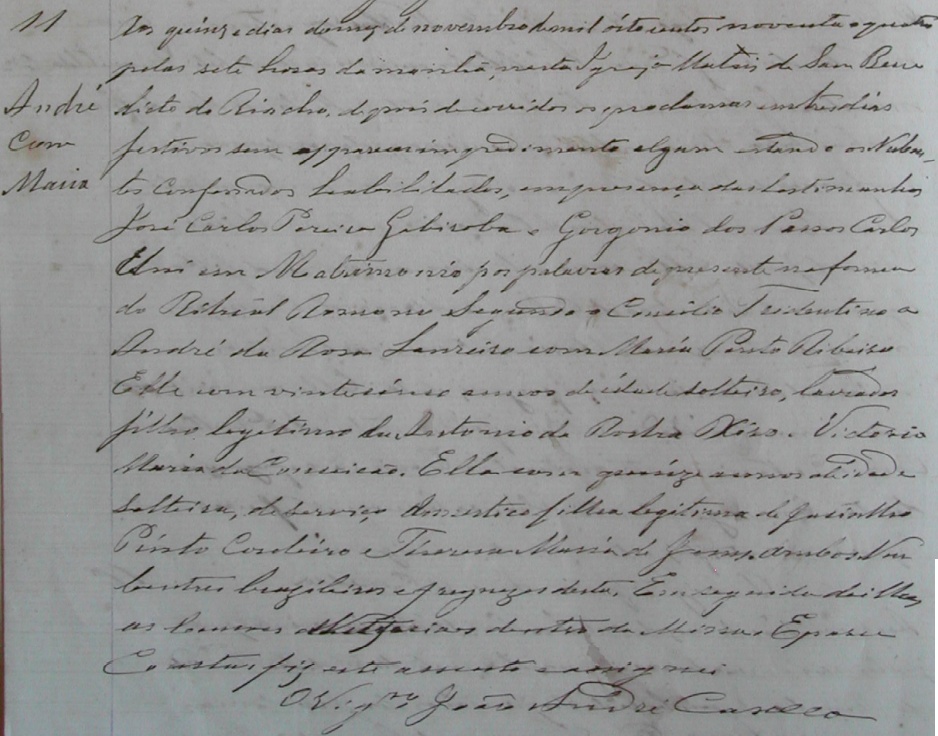 11
André
Com
Maria
Aos quinze dias do mez de novembro de mil oitocentos noventa e quatro
pelas sete horas da manhã, nesta Igreja Matris de Sam Bene
dicto do Riacho, depois de corridos os proclamas em tres dias
festivos sem apparecer impedimento algum estando os Nuben,
tes confessados habilitados, em presença das testemunhas
José Carlos Pereira e Gorgonio dos Passos Carlos
Uni em Matrimonio por palavras de presente na forma
do Ritual Romano Segundo o Concilio Tridentino a
André da Rosa Loureiro com Maria Pinto Ribeiro
Elle com vinte e cinco annos de idade solteiro, lavrador
filho legitimo de Antonio da Victoria
Maria da Conceicão. Ella com quinze annos de idade
solteira, de serviço domestico filha legitima de Jacintho
Pinto Cordeiro e Thereza Maria de Jesus, ambos Nu
bentes brazileiros e freguezes desta. Em seguida dei lhes
as bençoes dentro da Missa. E para
Constar fiz este assento e assignei.
O Vigr.º João André Casella